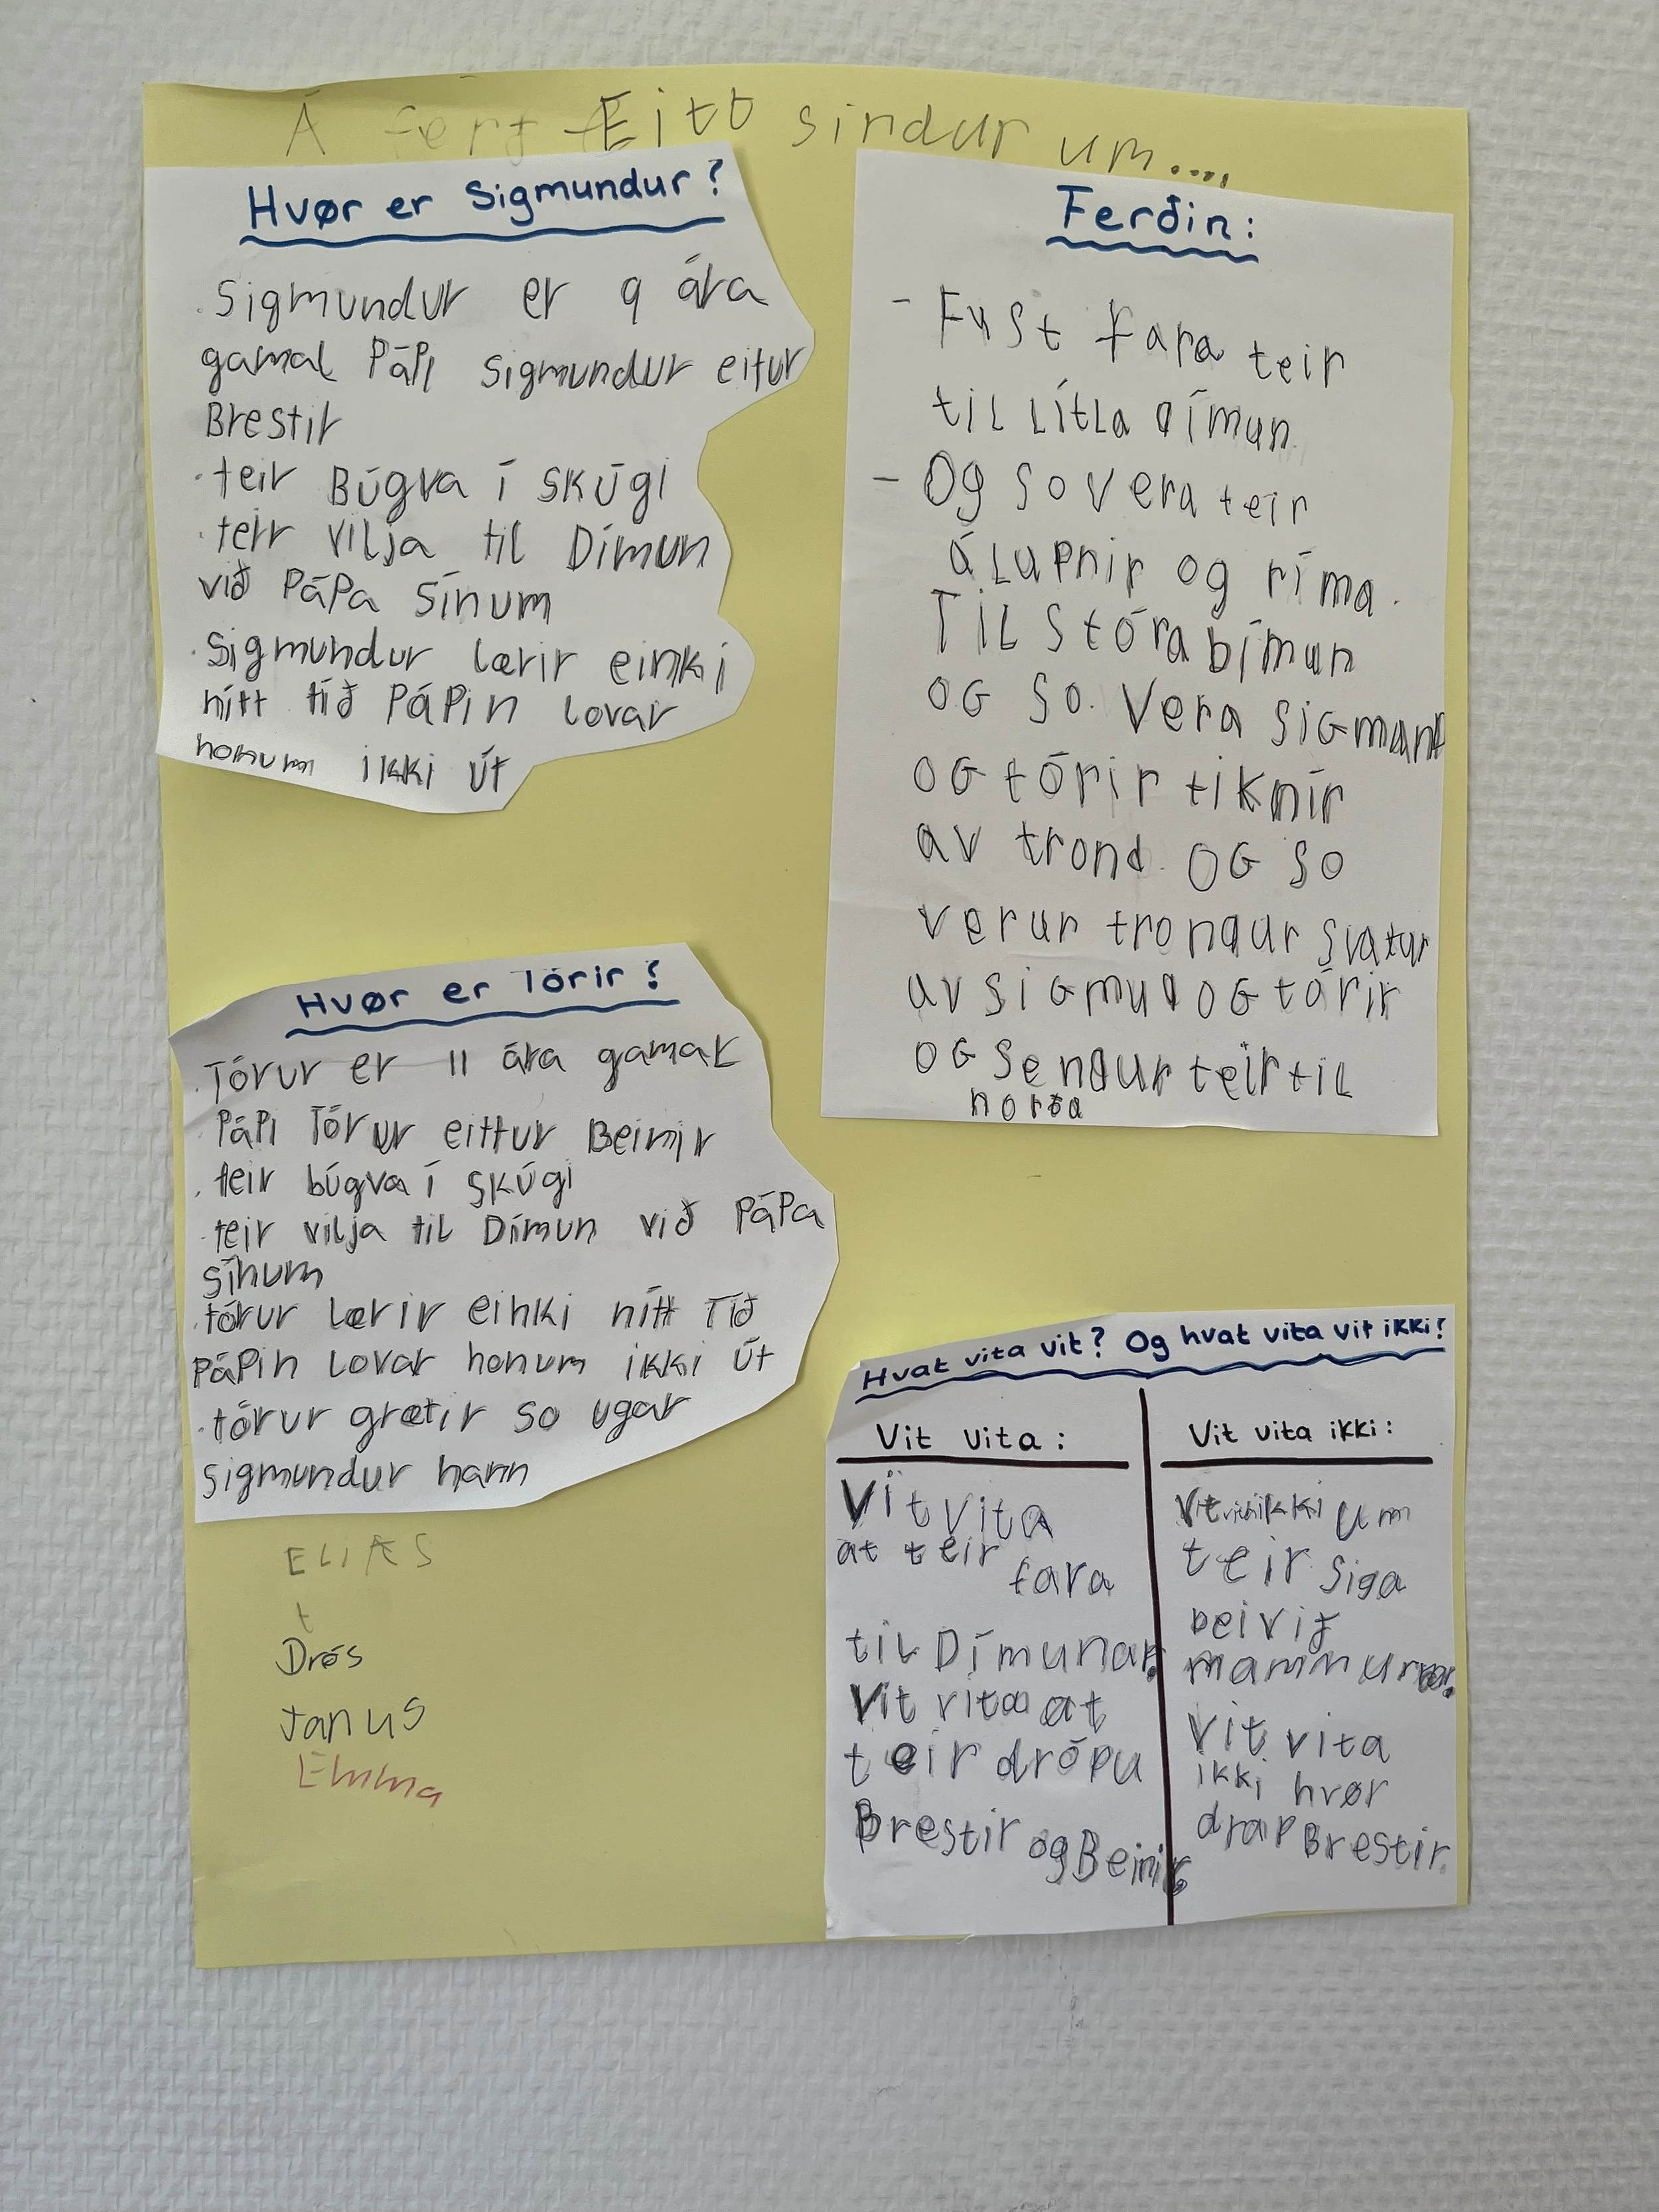 Á ferð Eitt sindur um....
Hvør er Sigmundur?
. Sigmundur er 9 ára
gamal Pápi Sigmundur eitur
Brestir
. teir Búgva í SKúgi
. teir vilja til Dímun
við PáPa Sínum
. Sigmundur lærir einki
nítt tíð PáPin lovar
honum ikki út
Hvør er Tórir?
. Tórur er 11 ára gamaL
Pápi Tórur eittur Beinir
. teir búgva í skúgi
. teir vilja til Dímun við PáPa
sínum
. tórur lærir einki nítt Tíð
PáPin lovar honum ikki út
. tórur grætir so ugar
sigmundur hann
ELIAS
t
Drós
Janus
Emma
Ferðin:
- Fyst fara teir
tiL LítLa dímun
- Og so vera teir
áLupnir og ríma.
TiL Stóra bímun
OG so. Vera SiGmant
OG tórir tiknir
av trond. OG so
verur trondur svatur
av siGmud OG tórir
OG sendur teir tiL
norða
Hvat vita vit? Og hvat vita vit ikki?
Vit vita:
Vit Vita
at teir fara
tiL Dímunar.
Vit vita at
teir drópu
Brestir og Beinir
Vit vita ikki:
Vit vita ikki um
teir siga
bei við
mammurnar.
Vit vita
ikki hvør
drap Brestir.